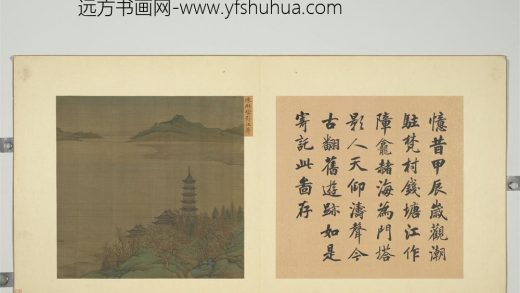 远方书画网-www.yfshuhua.com
憶昔甲辰歲觀潮
駐梵村錢塘江作
障龕赭海為門塔
影人天仰濤聲今
古翻舊遊跡如是
寄託此啚存